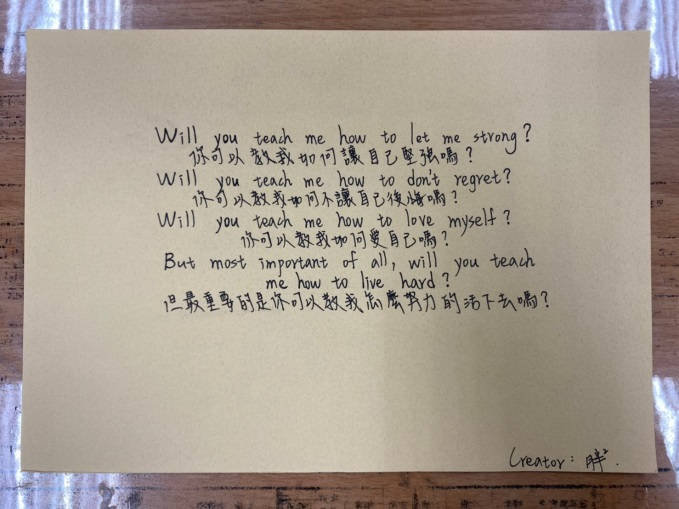 Will you teach me how to let me strong?
你可以教我如何讓自己堅強嗎?
Will you teach me how to don't regret?
你可以教我如何不讓自己後悔嗎?
Will you teach me how to love myself?
你可以教我如何愛自己嗎?
But most important of all, will you teach
me how to live hard?
但最重要的是你可以教我怎麼努力的活下去嗎?
Creator: 胖².